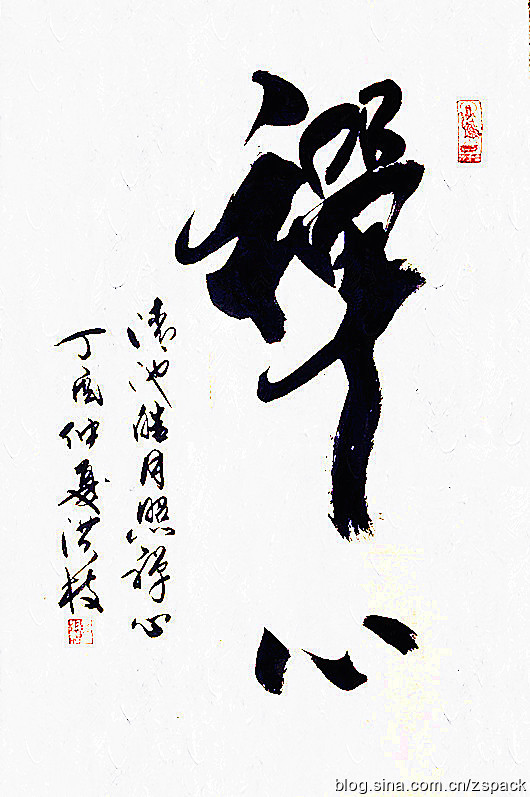 禅心
清池皓月照禅心
丁酉仲夏洪枝
blog.sina.com.cn/zspack